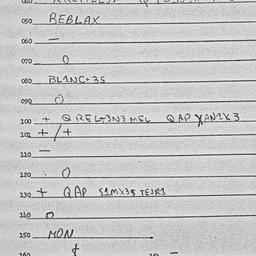 050 REBLAX
060 —
070 O
080 BL1NC+3S
090 O
100 + QRELT3N3MEL QAP XAN1X3
101 + / +
110 —
120 : O
130 + QAP S1MX35 TEJR1
140 O
150 MON
160